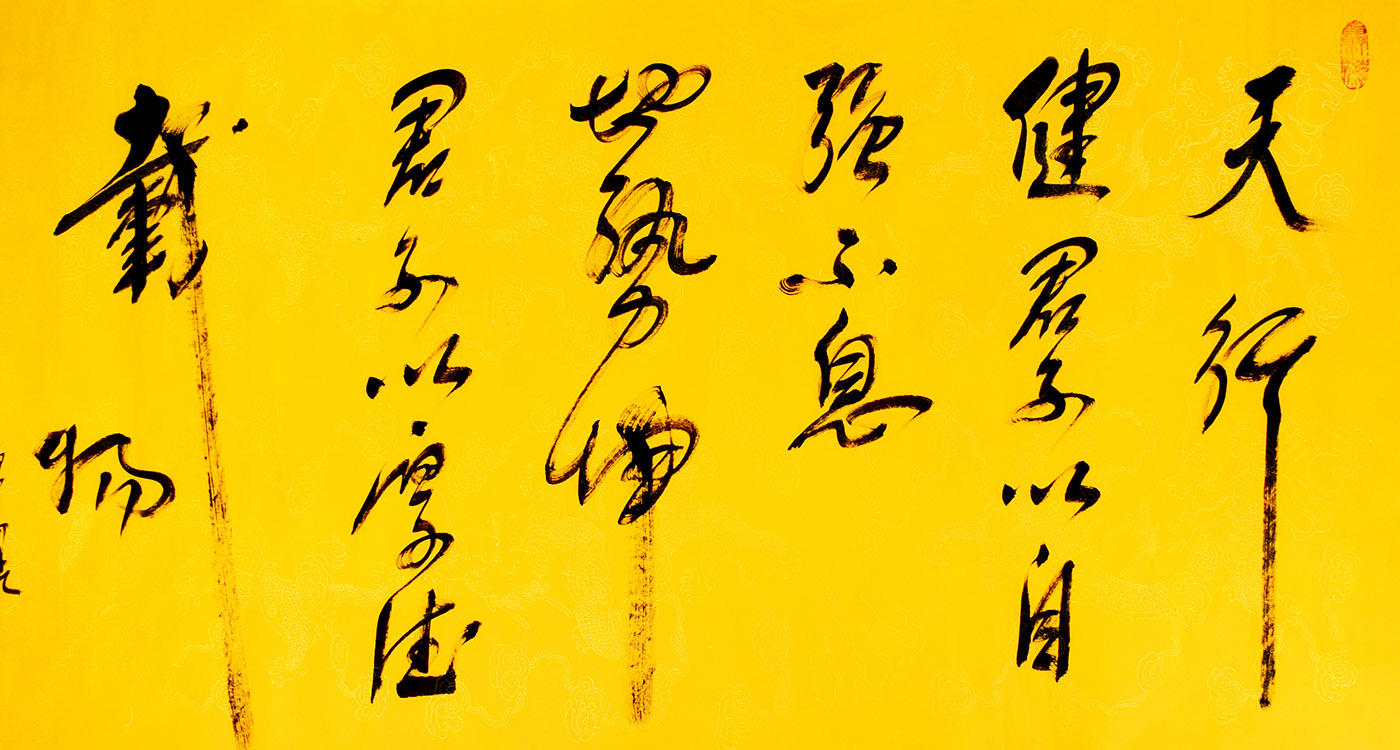 天行
健君子以自
强不息
地勢坤
君子以厚德
載物